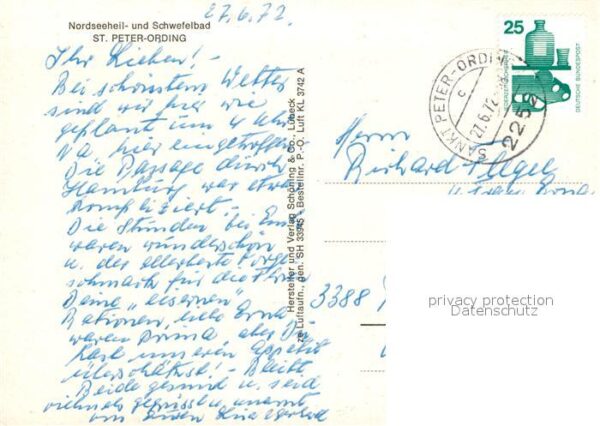 27.6.72.
Nordseeheil- und Schwefelbad
ST. PETER-ORDING
Ihr Lieben! -
Bei schönstem Wetter
sind wir hier wie
geplant um 4 Uhr
hier eingetroffen
Die Passage durch
Hamburg war etwas
kompliziert.
Die Stunden bei Euch
waren wunderschön
u. der allererste
für die
Deine "eisernen"
Rationen, liebe Erna
waren prima aber Du
hast unseren Appetit
überschätzt - Bleibt
Beide gesund u. seid
vielmals gegrüsst u. umarmt
von Euren
Hersteller und Verlag Schöning & Co., Lübeck
zu Luftaufn., gen. SH 339/5 - Bestellnr. P.-O. Luft KL 3742 A
25
DEUTSCHE BUNDESPOST
SANKT PETER-ORDING
c
27.6.72
2252
Herrn
Richard
u. Frau Erna
3388
privacy protection
Datenschutz